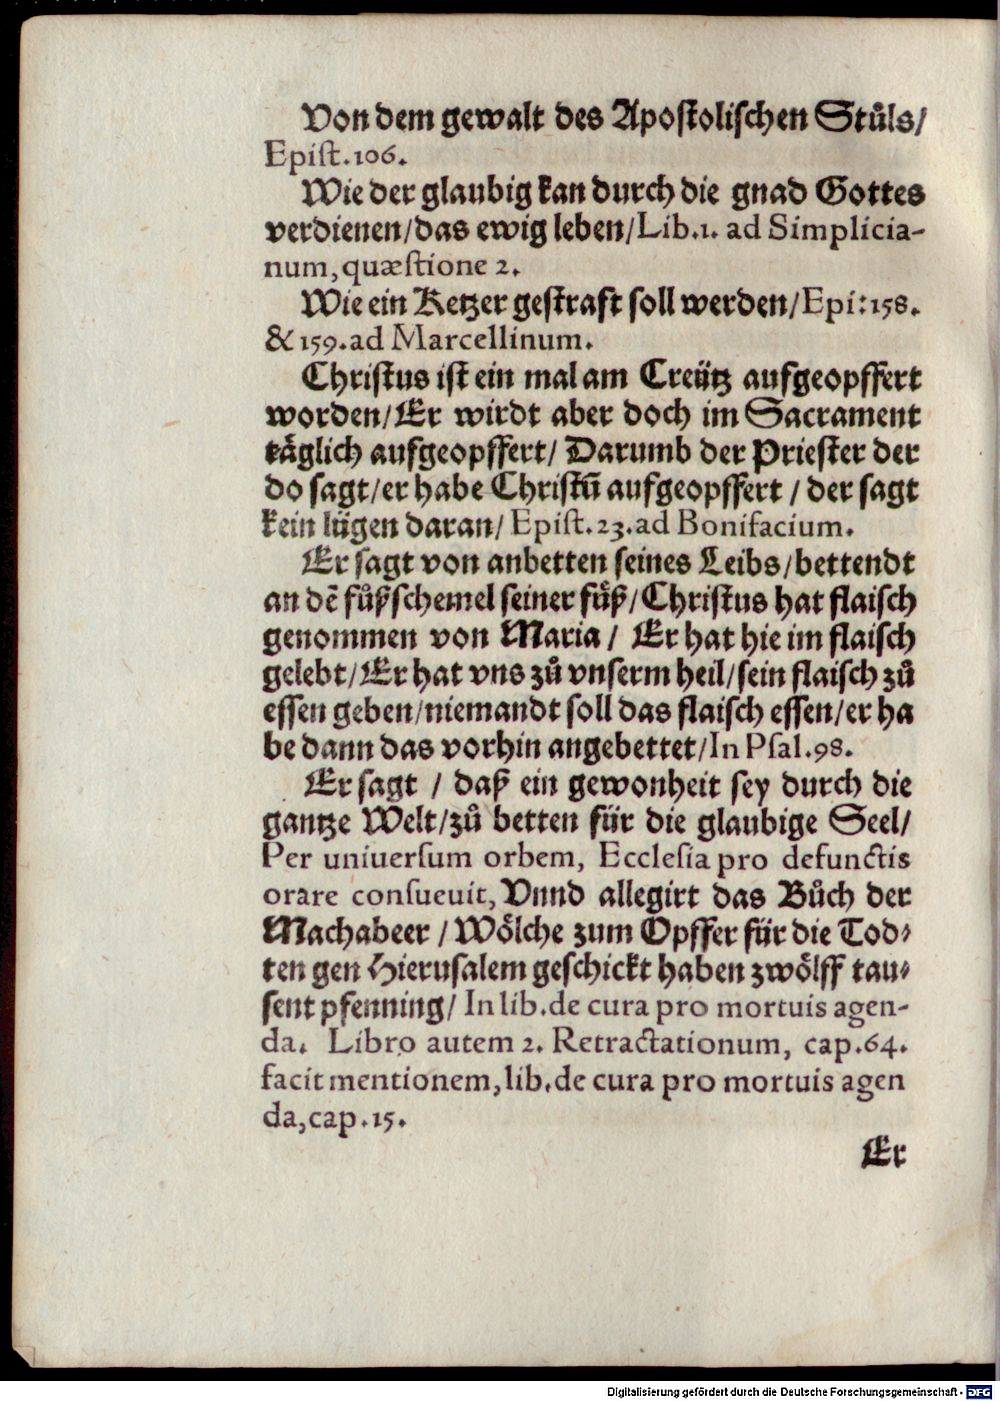 Von dem gewalt des Apostolischen Stůls/
Epist.106.
Wie der glaubig kan durch die gnad Gottes
verdienen/das ewig leben/Lib.1. ad Simplicia-
num, quæstione 2.
Wie ein Ketzer gestraft soll werden/Epi:158.
& 159.ad Marcellinum.
Christus ist ein mal am Creütz aufgeopffert
worden/Er wirdt aber doch im Sacrament
täglich aufgeopffert/ Darumb der Priester der
do sagt/er habe Christū aufgeopffert / der sagt
kein lügen daran/ Epist.23.ad Bonifacium.
Er sagt von anbetten seines Leibs/bettendt
an dē fůßschemel seiner füß/Christus hat flaisch
genommen von Maria / Er hat hie im flaisch
gelebt/Er hat vns zů vnserm heil/sein flaisch zů
essen geben/niemandt soll das flaisch essen/er ha
be dann das vorhin angebettet/In Psal.98.
Er sagt / daß ein gewonheit sey durch die
gantze Welt/zů betten für die glaubige Seel/
Per uniuersum orbem, Ecclesia pro defunctis
orare consueuit, Vnnd allegirt das Bůch der
Machabeer / Wölche zum Opffer für die Tod-
ten gen Hierusalem geschickt haben zwölff tau-
sent pfenning/ In lib.de cura pro mortuis agen-
da. Libro autem 2. Retractationum, cap.64.
facit mentionem, lib.de cura pro mortuis agen
da, cap.15.
Er
Digitalisierung gefördert durch die Deutsche Forschungsgemeinschaft - DFG